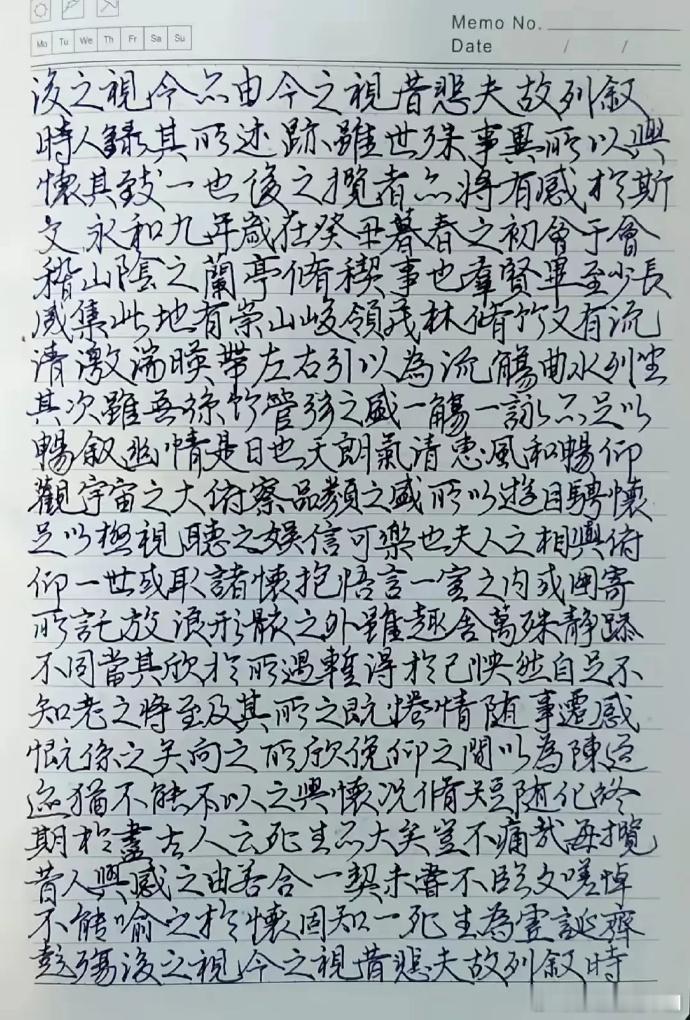 Memo No.
Date / /
Mo Tu We Th Fr Sa Su
後之視今亦由今之視昔悲夫故列叙
時人錄其所述跡雖世殊事異所以興
懷其致一也後之攬者亦將有感於斯
文永和九年歲在癸丑暮春之初會于會
稽山陰之蘭亭脩稧事也羣賢畢至少長
咸集此地有崇山峻領茂林脩竹又有流
清激湍暎帶左右引以為流觴曲水列坐
其次雖無絲竹管弦之盛一觴一詠亦足以
暢叙幽情是日也天朗氣清惠風和暢仰
觀宇宙之大俯察品類之盛所以遊目騁懷
足以極視聽之娛信可樂也夫人之相與俯
仰一世或取諸懷抱悟言一室之內或因寄
所託放浪形骸之外雖趣舍萬殊靜躁
不同當其欣於所遇暫得於己怏然自足不
知老之將至及其所之既惓情随事遷感
慨係之矣向之所欣俛仰之間以為陳迹
猶不能不以之興懷況脩短随化終
期於盡古人云死生亦大矣豈不痛哉每攬
昔人興感之由若合一契未嘗不臨文嗟悼
不能喻之於懷固知一死生為虛誕齊
彭殤後之視今之視昔悲夫故列叙時